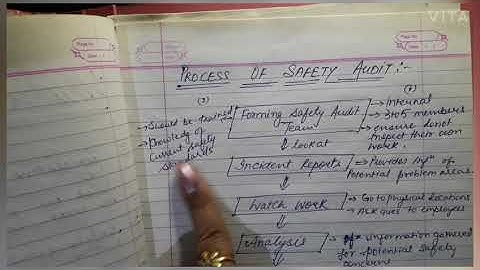 VITA
Page No.
Date
Page No.
Date
PROCESS OF SAFETY AUDIT :-
(3)
(2)
→ Should be trained
→ Knowledge of
current safety
Forming Safety Audit
Team
→ Internal
→ 3 to 5 members
→ ensure donot
inspect their own
work.
↓ look at
Incident Reports
→ Provides infⁿ of
potential problem areas.
⇓
WATCH WORK
→ Go to physical locations
→ Ask ques to employees
⇓
Analysis
→ information gathered
for potential safety
concerns